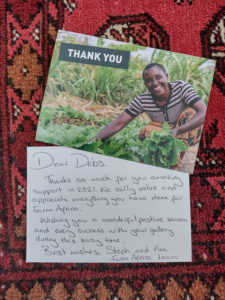 THANK YOU
Dear Debs,
Thanks so much for you amazing
support in 2021. We really value and
appreciate everything you have done for
Farm Africa.
Wishing you a wonderful festive season
and every success with your gallery
during this busy time.
Best wishes, Steph and the
Farm Africa team